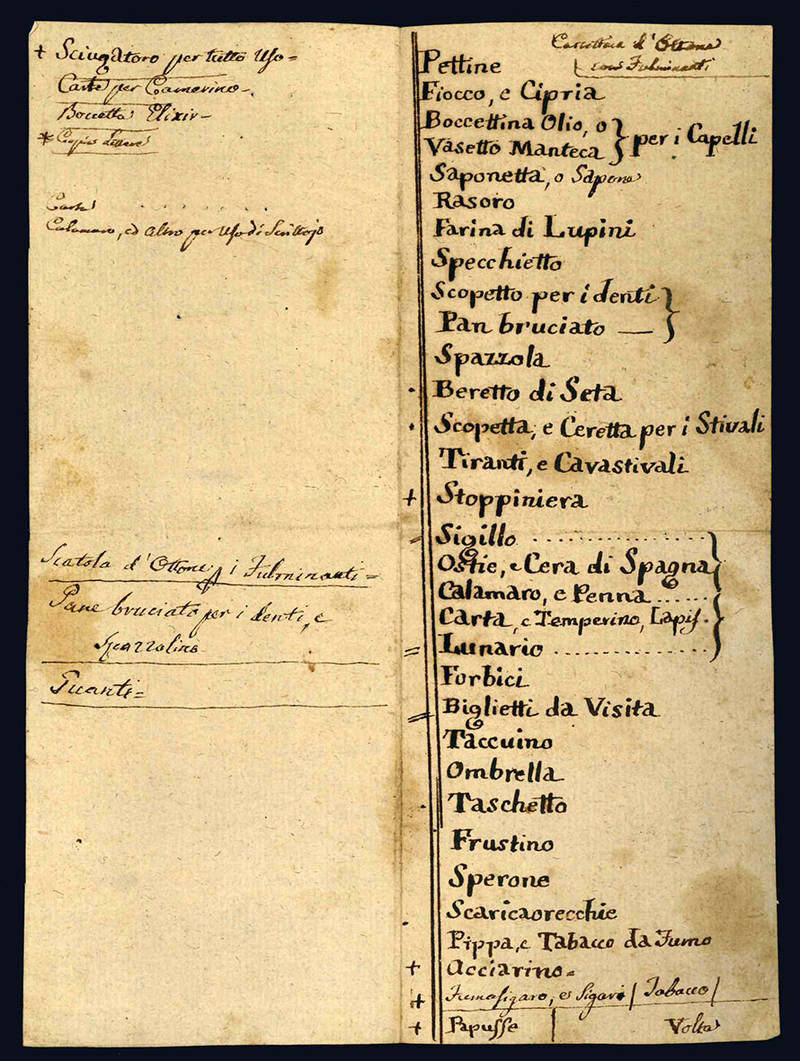 + Sciugatoro per tutto Uso=
Carte per Camerino-
Boccetta Elixir-
*
Carte . . . . . . .
Calamaro, ed altro per Uso di Scrittojo
Scatola d'Ottone p i Fulminanti=
Pane bruciato per i denti, e
Spazzolino
Guanti=
d'Ottone
con Fulminanti
Pettine
Fiocco, e Cipria
Boccettina Olio, o
Vasetto Manteca } per i Capelli
Saponetta, o Sapone
Rasoro
Farina di Lupini
Specchietto
Scopetto per i denti
Pan bruciato —
Spazzola
Beretto di Seta
Scopetta, e Ceretta per i Stivali
Tiranti, e Cavastivali
+ Stoppiniera
Sigillo ....................
Ostie, e Cera di Spagna
Calamaro, e Penna ......
Carta, e Temperino, Lapis.
= Lunario ..................
Forbici
= Biglietti da Visita
Taccuino
Ombrella
Taschetto
Frustino
Sperone
Scaricaorecchie
Pippa, e Tabacco da Fumo
+ Acciarino=
+ Fumasigaro, e Sigari / Tabacco /
+ Papusse Volta